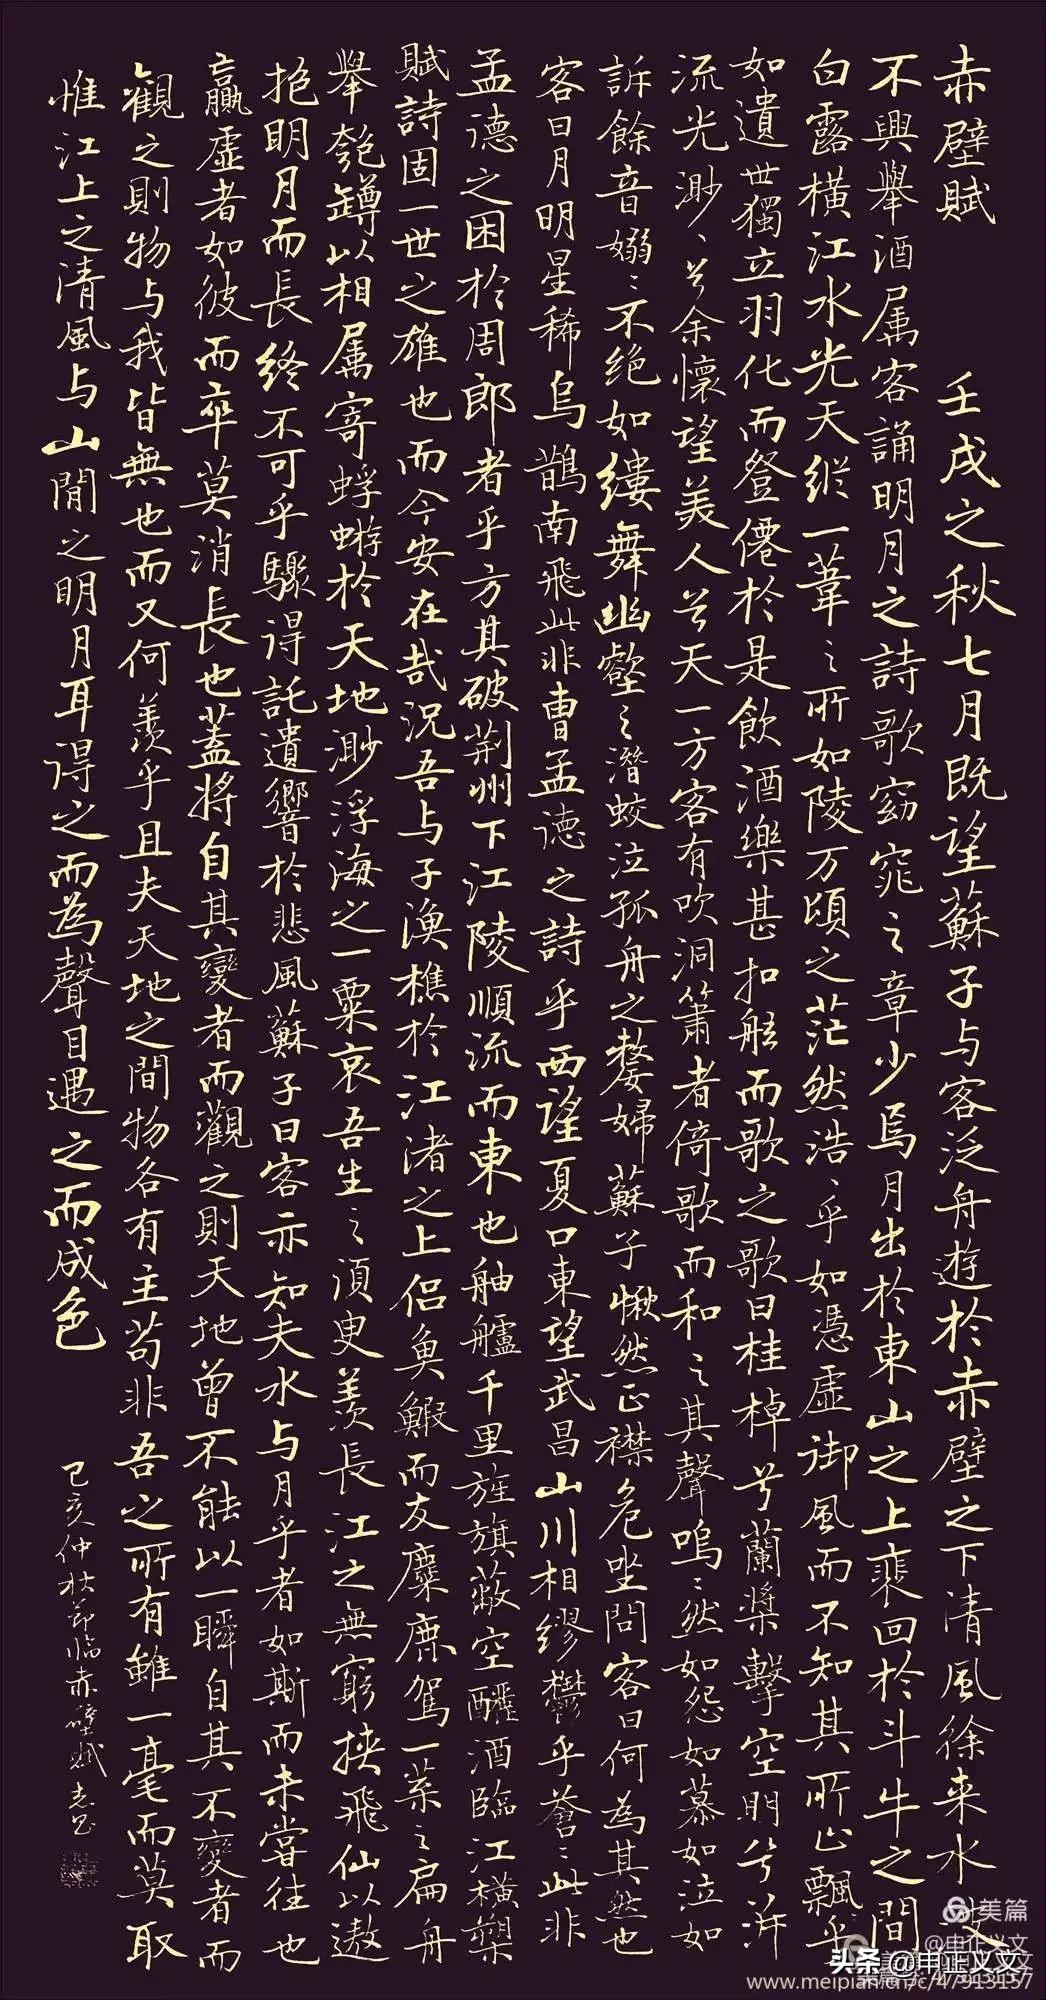 赤壁賦　壬戌之秋七月既望蘇子与客泛舟遊於赤壁之下清風徐来水波
不興舉酒属客誦明月之詩歌窈窕之章少焉月出於東山之上裵回於斗牛之間
白露横江水光天縱一葦之所如陵万頃之茫然浩浩乎如憑虚御風而不知其所止飄乎
如遺世獨立羽化而登僊於是飲酒樂甚扣舷而歌之歌曰桂棹兮蘭槳擊空明兮泝
流光渺渺兮余懷望美人兮天一方客有吹洞簫者倚歌而和之其聲嗚嗚然如怨如慕如泣如
訴餘音嫋嫋不绝如縷舞幽壑之潛蛟泣孤舟之嫠婦蘇子愀然正襟危坐問客曰何為其然也
客曰月明星稀烏鵲南飛此非曹孟德之詩乎西望夏口東望武昌山川相繆鬱乎蒼蒼此非
孟德之困於周郎者乎方其破荆州下江陵順流而東也舳艫千里旌旗蔽空釃酒臨江横槊
賦詩固一世之雄也而今安在哉況吾与子渔樵於江渚之上侣魚鰕而友麋鹿駕一葉之扁舟
舉匏罇以相属寄蜉蝣於天地渺浮海之一粟哀吾生之須臾羡長江之無窮挾飛仙以遨
抱明月而長終不可乎驟得託遺響於悲風蘇子曰客亦知夫水与月乎者如斯而未嘗往也
贏虚者如彼而卒莫消長也蓋将自其變者而觀之則天地曾不能以一瞬自其不變者而
觀之則物与我皆無也而又何羡乎且夫天地之間物各有主苟非吾之所有雖一毫而莫取
惟江上之清風与山間之明月耳得之而為聲目遇之而成色
己亥仲秋节临赤壁赋
美篇
头条 @申正义文
www.meipian.cn/c/47913157